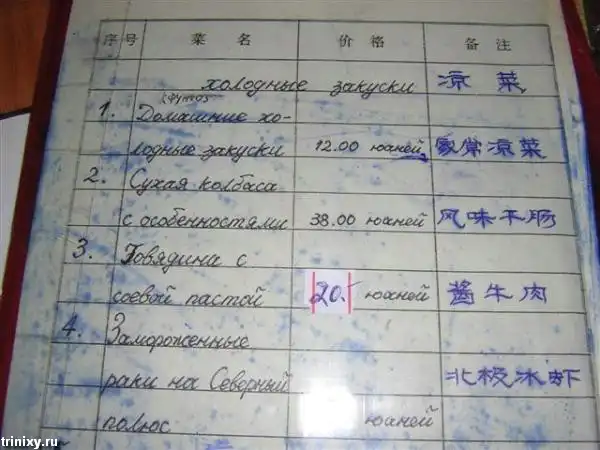 序号 菜名 价格 备注
холодные закуски 凉菜
1. Домашние хо-
лодные закуски 12.00 юаней 家常凉菜
2. Сухая колбаса
с особенностями 38.00 юаней 风味干肠
3. Говядина с
соевой пастой 20.- юаней 酱牛肉
4. Замороженные
раки на Северный 北极冰虾
полюс юаней
trinixy.ru